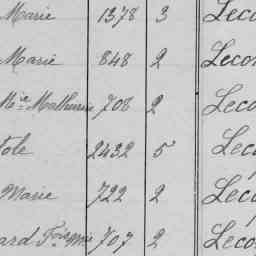 Marie 1378 3 Leco
Marie 848 2 Leco
Mie Mathurine 708 2 Leco
tole 2432 5 Léco
Marie 722 2 Léco
ard 707 2 Léco